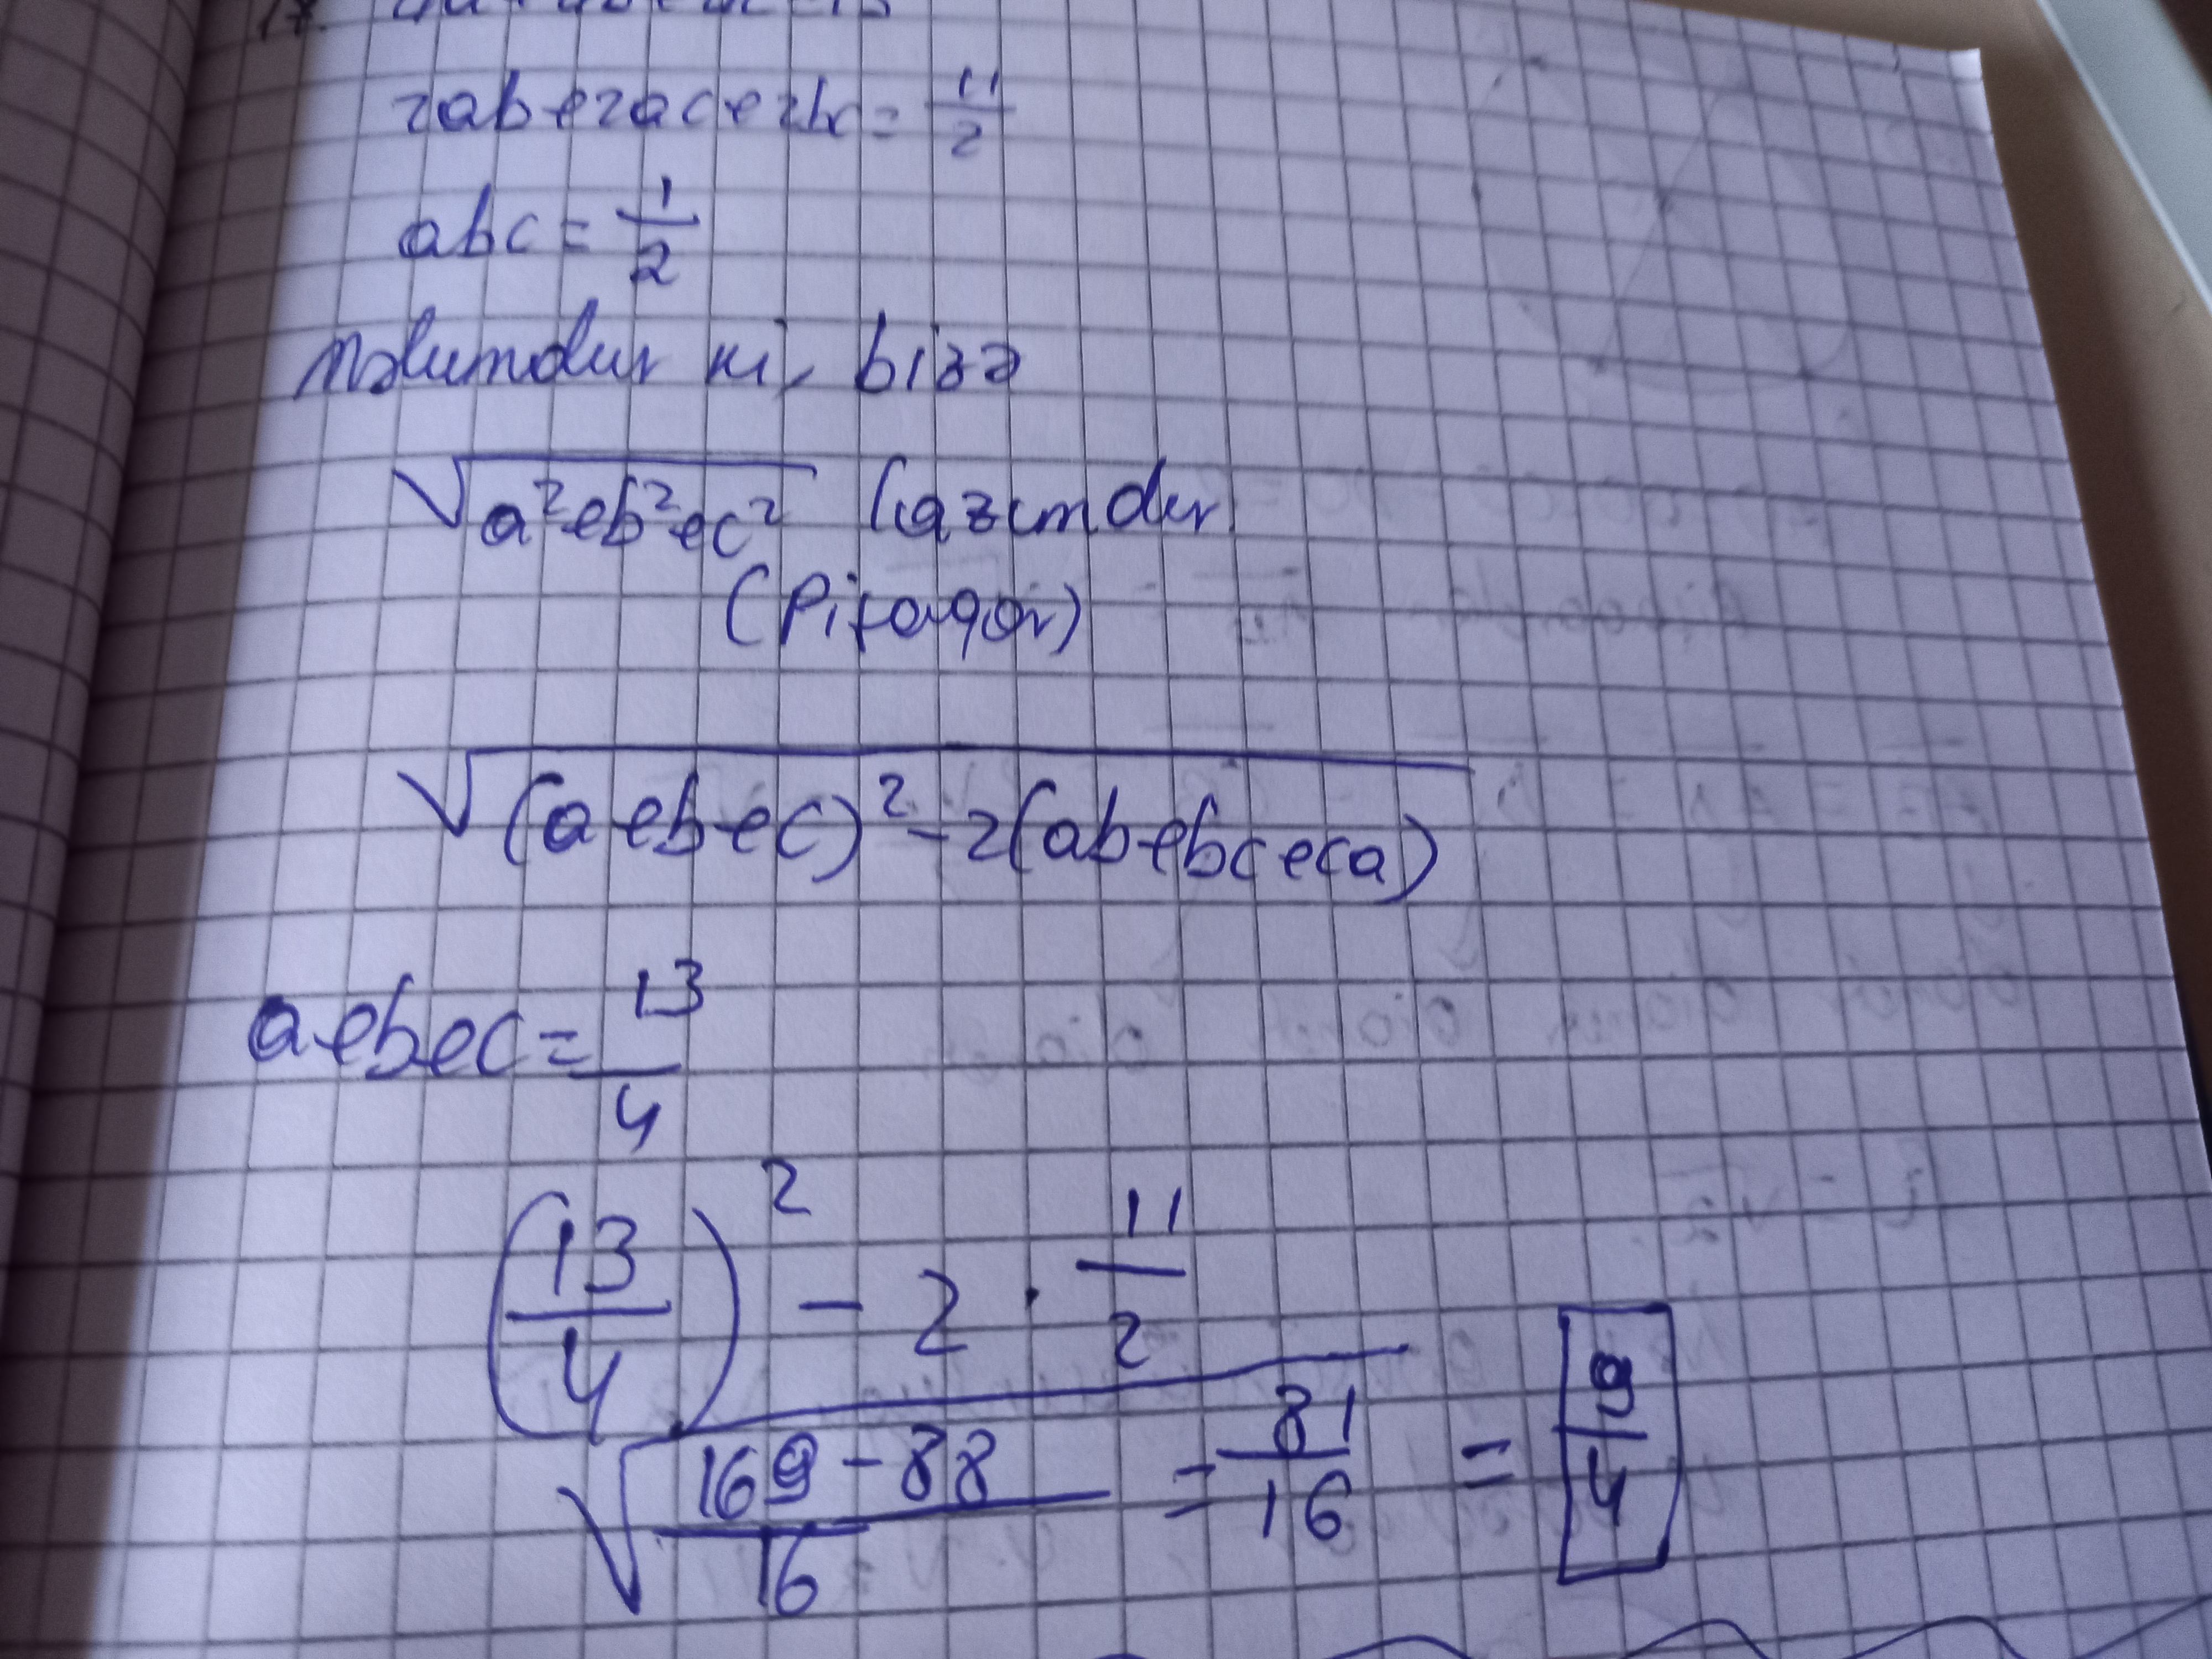 2ab+2ac+2bc = 11/2
abc = 1/2
Məlumdur ki, bizə
√(a²+b²+c²) lazımdır
(Pifaqor)
√((a+b+c)² - 2(ab+bc+ca))
a+b+c = 13/4
(13/4)² - 2 · 11/2
√((169-88)/16) = 81/16 = 9/4